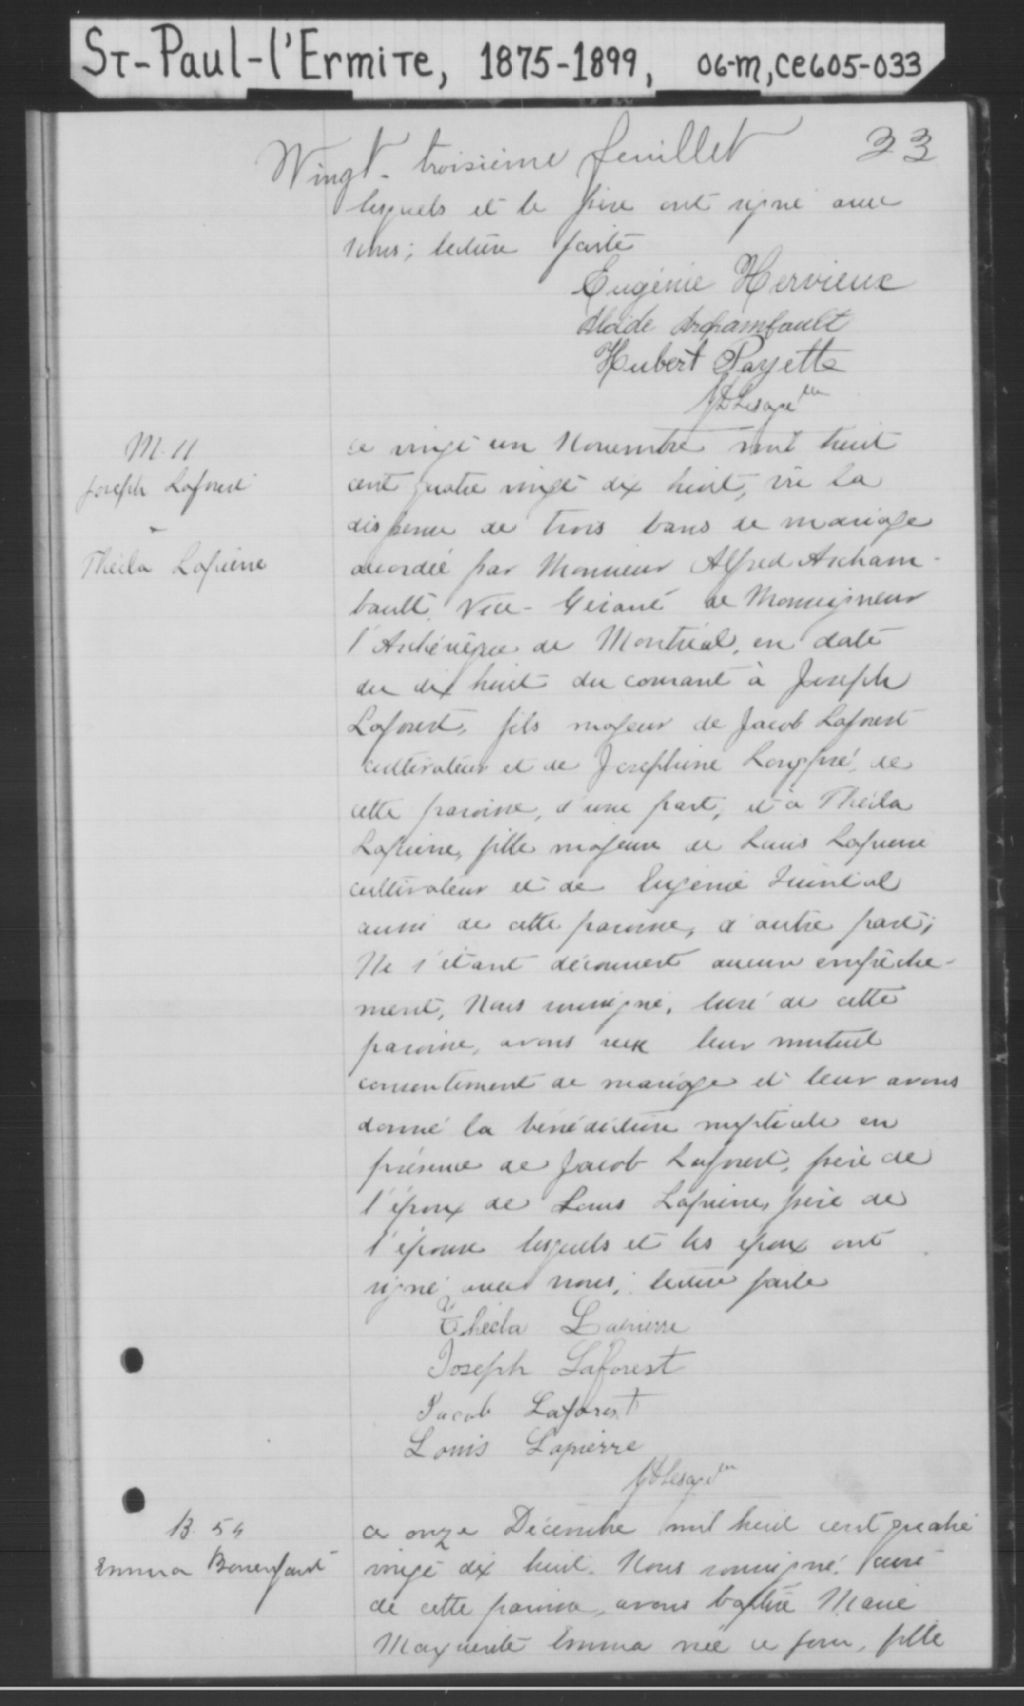 ST-Paul-l'Ermite, 1875-1899, 06-M, CE605-033
Vingt-troisième feuillet 23
lesquels et le père ont signé avec
nous; lecture faite
Eugénie Hervieux
Alaide Archambault
Hubert Payette
M. 11
Joseph Laforest
-
Théila Lapierre
ce vingt un Novembre mil huit
cent quatre vingt dix huit, vu la
dispense de trois bans de mariage
accordée par Monsieur Alfred Archam-
bault, Vice-Gérant de Monseigneur
l'Archevêque de Montréal, en date
du dix huit du courant à Joseph
Laforest, fils majeur de Jacob Laforest
cultivateur et de Josephine Longpré, de
cette paroisse, d'une part, et à Théila
Lapierre, fille majeure de Louis Lapierre
cultivateur et de Eugénie Quintal
aussi de cette paroisse, d'autre part;
Ne s'étant découvert aucun empêche-
ment, Nous soussigné, curé de cette
paroisse, avons reçu leur mutuel
consentement de mariage et leur avons
donné la bénédiction nuptiale en
présence de Jacob Laforest, père de
l'époux de Louis Lapierre, père de
l'épouse lesquels et les époux ont
signé avec nous; lecture faite
Théila Lapierre
Joseph Laforest
Jacob Laforest
Louis Lapierre
B. 54
Emma Bonenfant
ce onze Décembre mil huit cent quatre
vingt dix huit. Nous soussigné, curé
de cette paroisse, avons baptisé Marie
Marguerite Emma née ce jour, fille